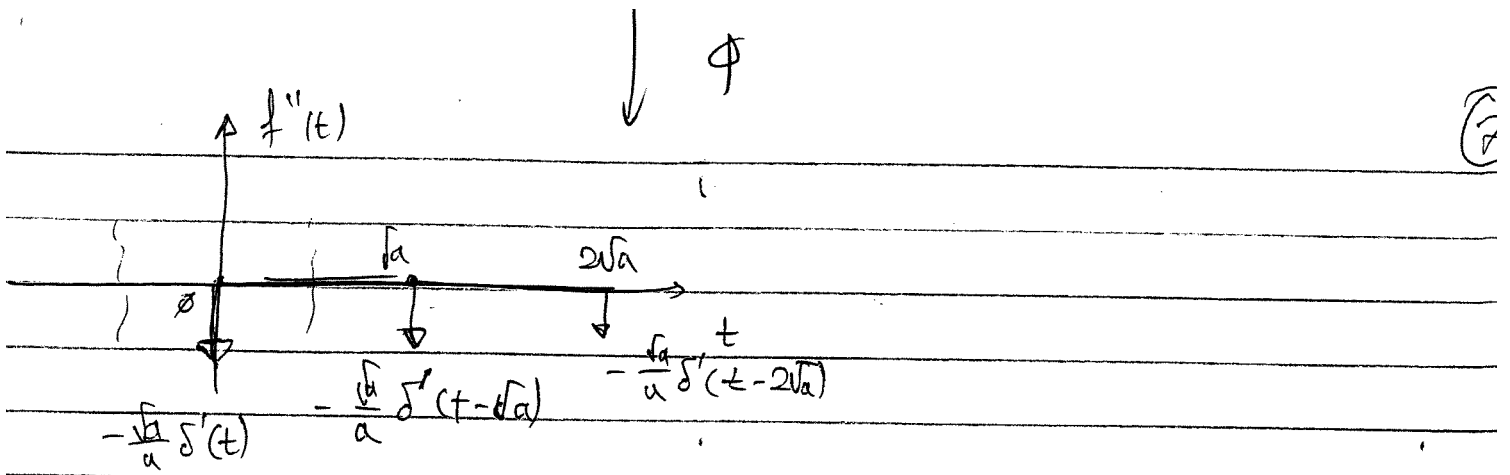 ϕ
f''(t)
√a
2√a
ø
t
-√a/a δ'(t)
-√a/a δ'(t-√a)
-√a/a δ'(t-2√a)